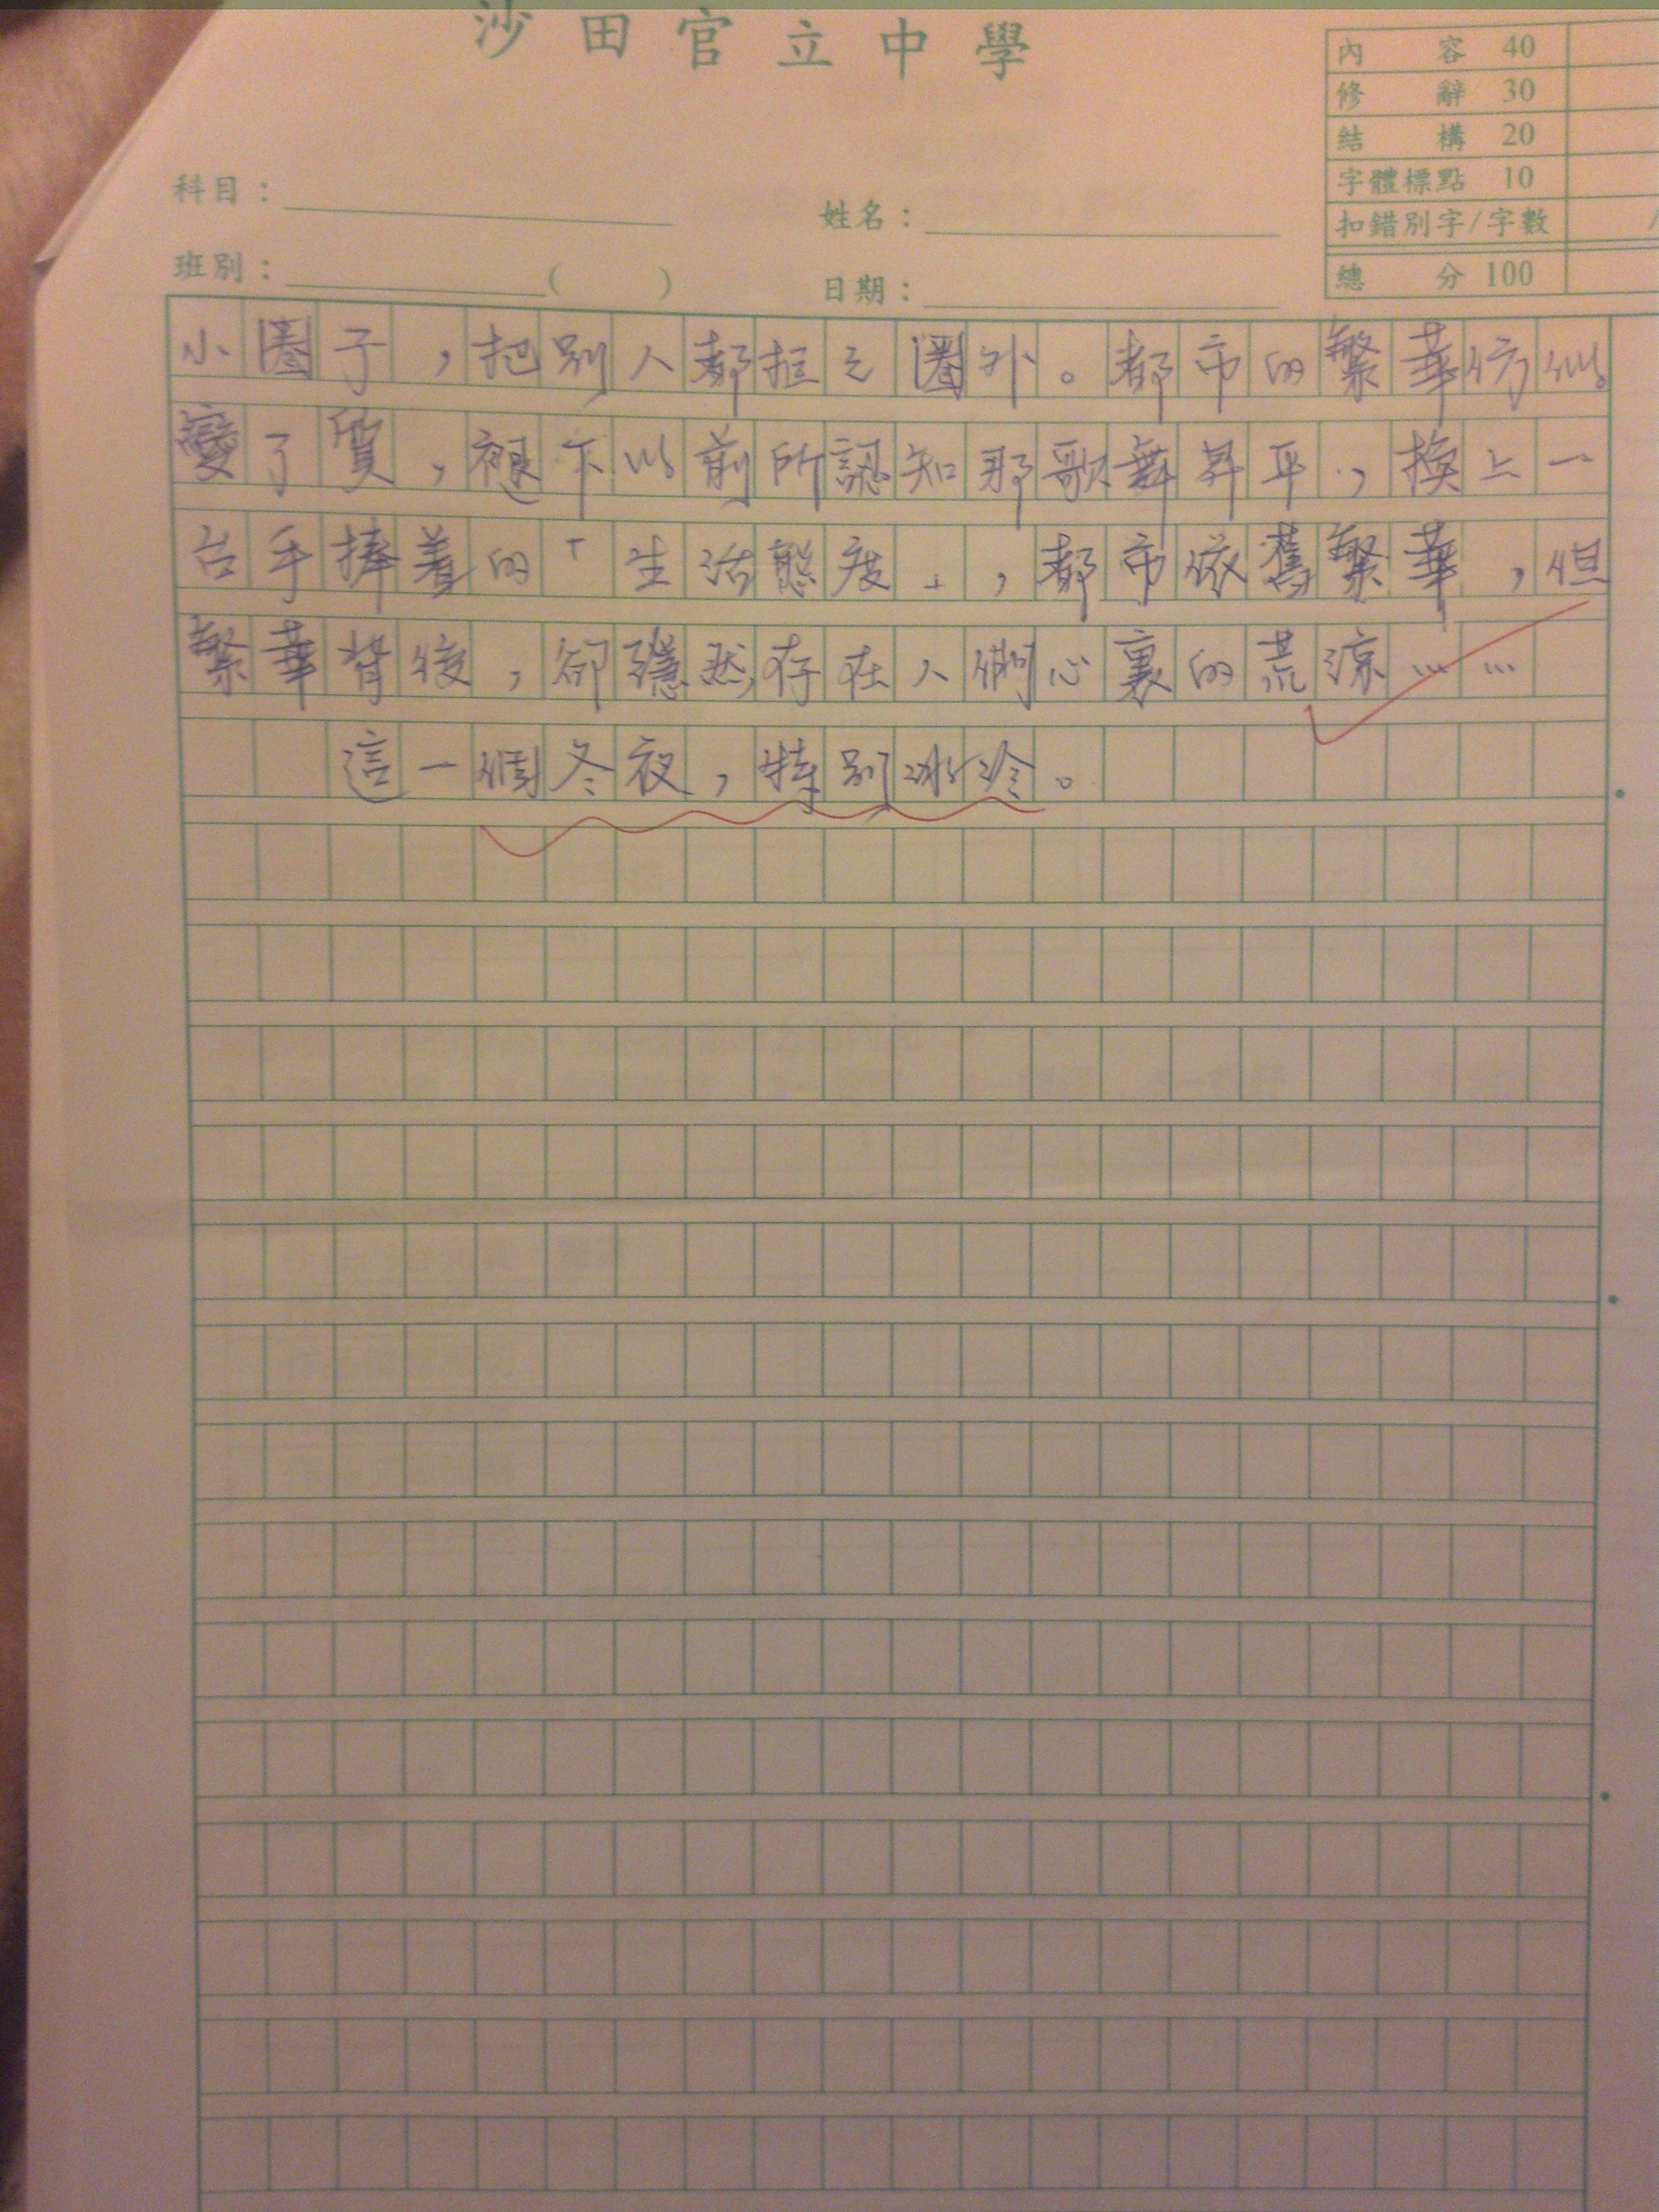 沙田官立中學
內容 40
修辭 30
結構 20
字體標點 10
扣錯別字/字數 /
總分 100
科目：
姓名：
班別： ( )
日期：
小圈子，把別人都拒之圈外。都市的繁華彷似
變了質，褪下以前所認知那歌舞昇平，換上一
台手捧着的「生活態度」，都市依舊繁華，但
繁華背後，卻隱然存在人們心裏的荒涼……
這一個冬夜，特別冰冷。